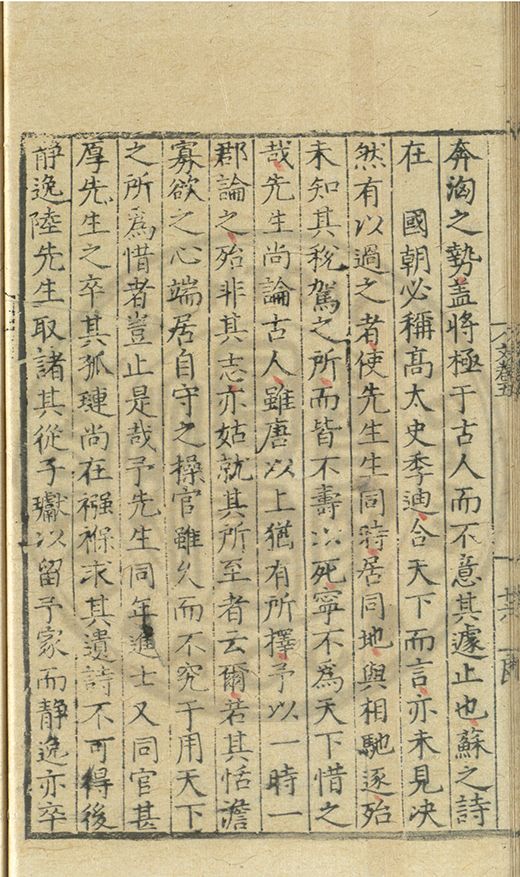 奔洶之勢盖將極于古人而不意其遽止也蘇之詩
在　國朝必稱髙太史季迪合天下而言亦未見决
然有以過之者使先生生同時居同地與相馳逐殆
未知其稅駕之所而皆不壽以死寧不為天下惜之
哉先生尚論古人雖唐以上猶有所擇予以一時一
郡論之殆非其志亦姑就其所至者云爾若其恬澹
寡欲之心端居自守之操官雖久而不究于用天下
之所為惜者豈止是哉予先生同年進士又同官甚
厚先生之卒其孤璉尚在襁褓求其遺詩不可得後
静逸陸先生取諸其從子瓛以留予家而静逸亦卒